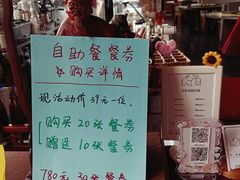 自助餐餐券
购买详情
现活动价39元一位.
购买20张餐券
赠送10张餐券
780元 30张餐券